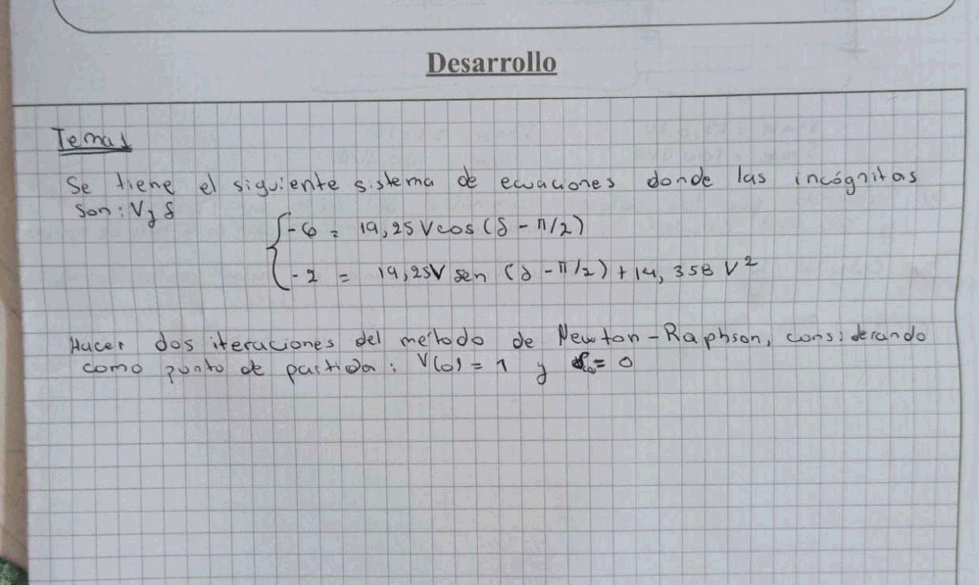 Desarrollo
Tema 1
Se tiene el siguiente sistema de ecuaciones donde las incógnitas
son: V y δ
-6 = 19,25 V cos (δ - π/2)
-2 = 19,25V sen (δ - π/2) + 14, 358 V²
Hacer dos iteraciones del método de Newton-Raphson, considerando
como punto de partida: V(0) = 1 y δ₀ = 0